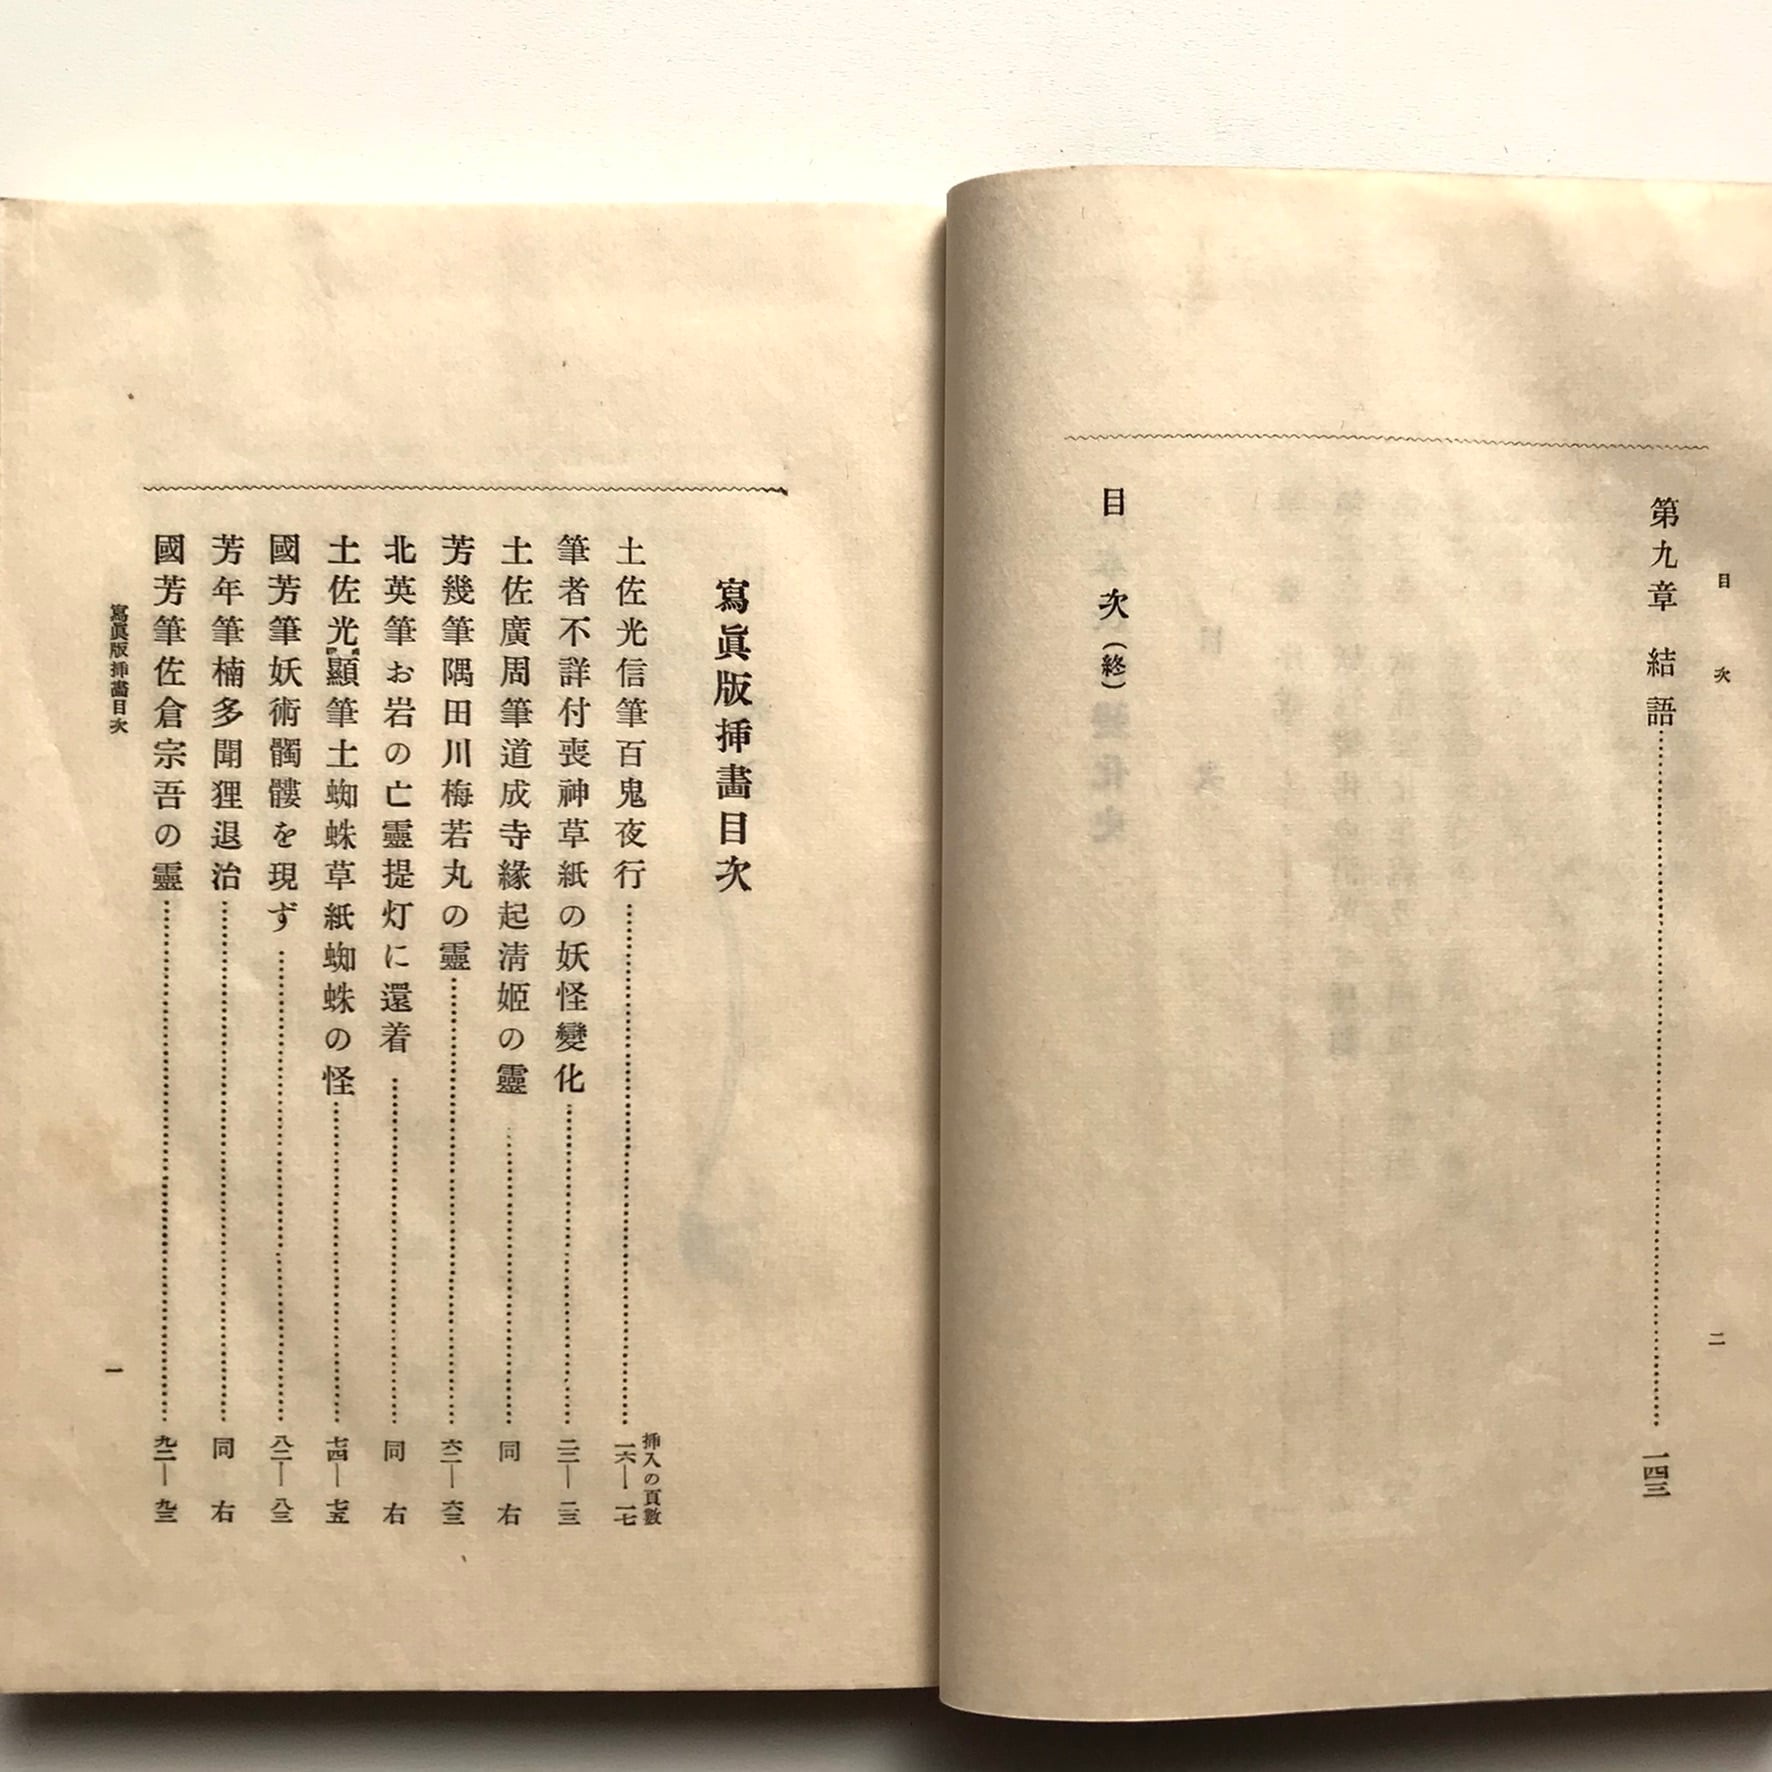 目次
二
第九章 結語……………一四三
目次(終)
寫眞版挿畫目次
挿入の頁數
土佐光信筆百鬼夜行……………一六—一七
筆者不詳付喪神草紙の妖怪變化……………二二—二三
土佐廣周筆道成寺緣起淸姬の靈……………同右
芳幾筆隅田川梅若丸の靈……………六二—六三
北英筆お岩の亡靈提灯に還着……………同右
土佐光顯筆土蜘蛛草紙蜘蛛の怪……………七四—七五
國芳筆妖術髑髏を現ず……………八二—八三
芳年筆楠多聞狸退治……………同右
國芳筆佐倉宗吾の靈……………九二—九三
寫眞版挿畫目次
一